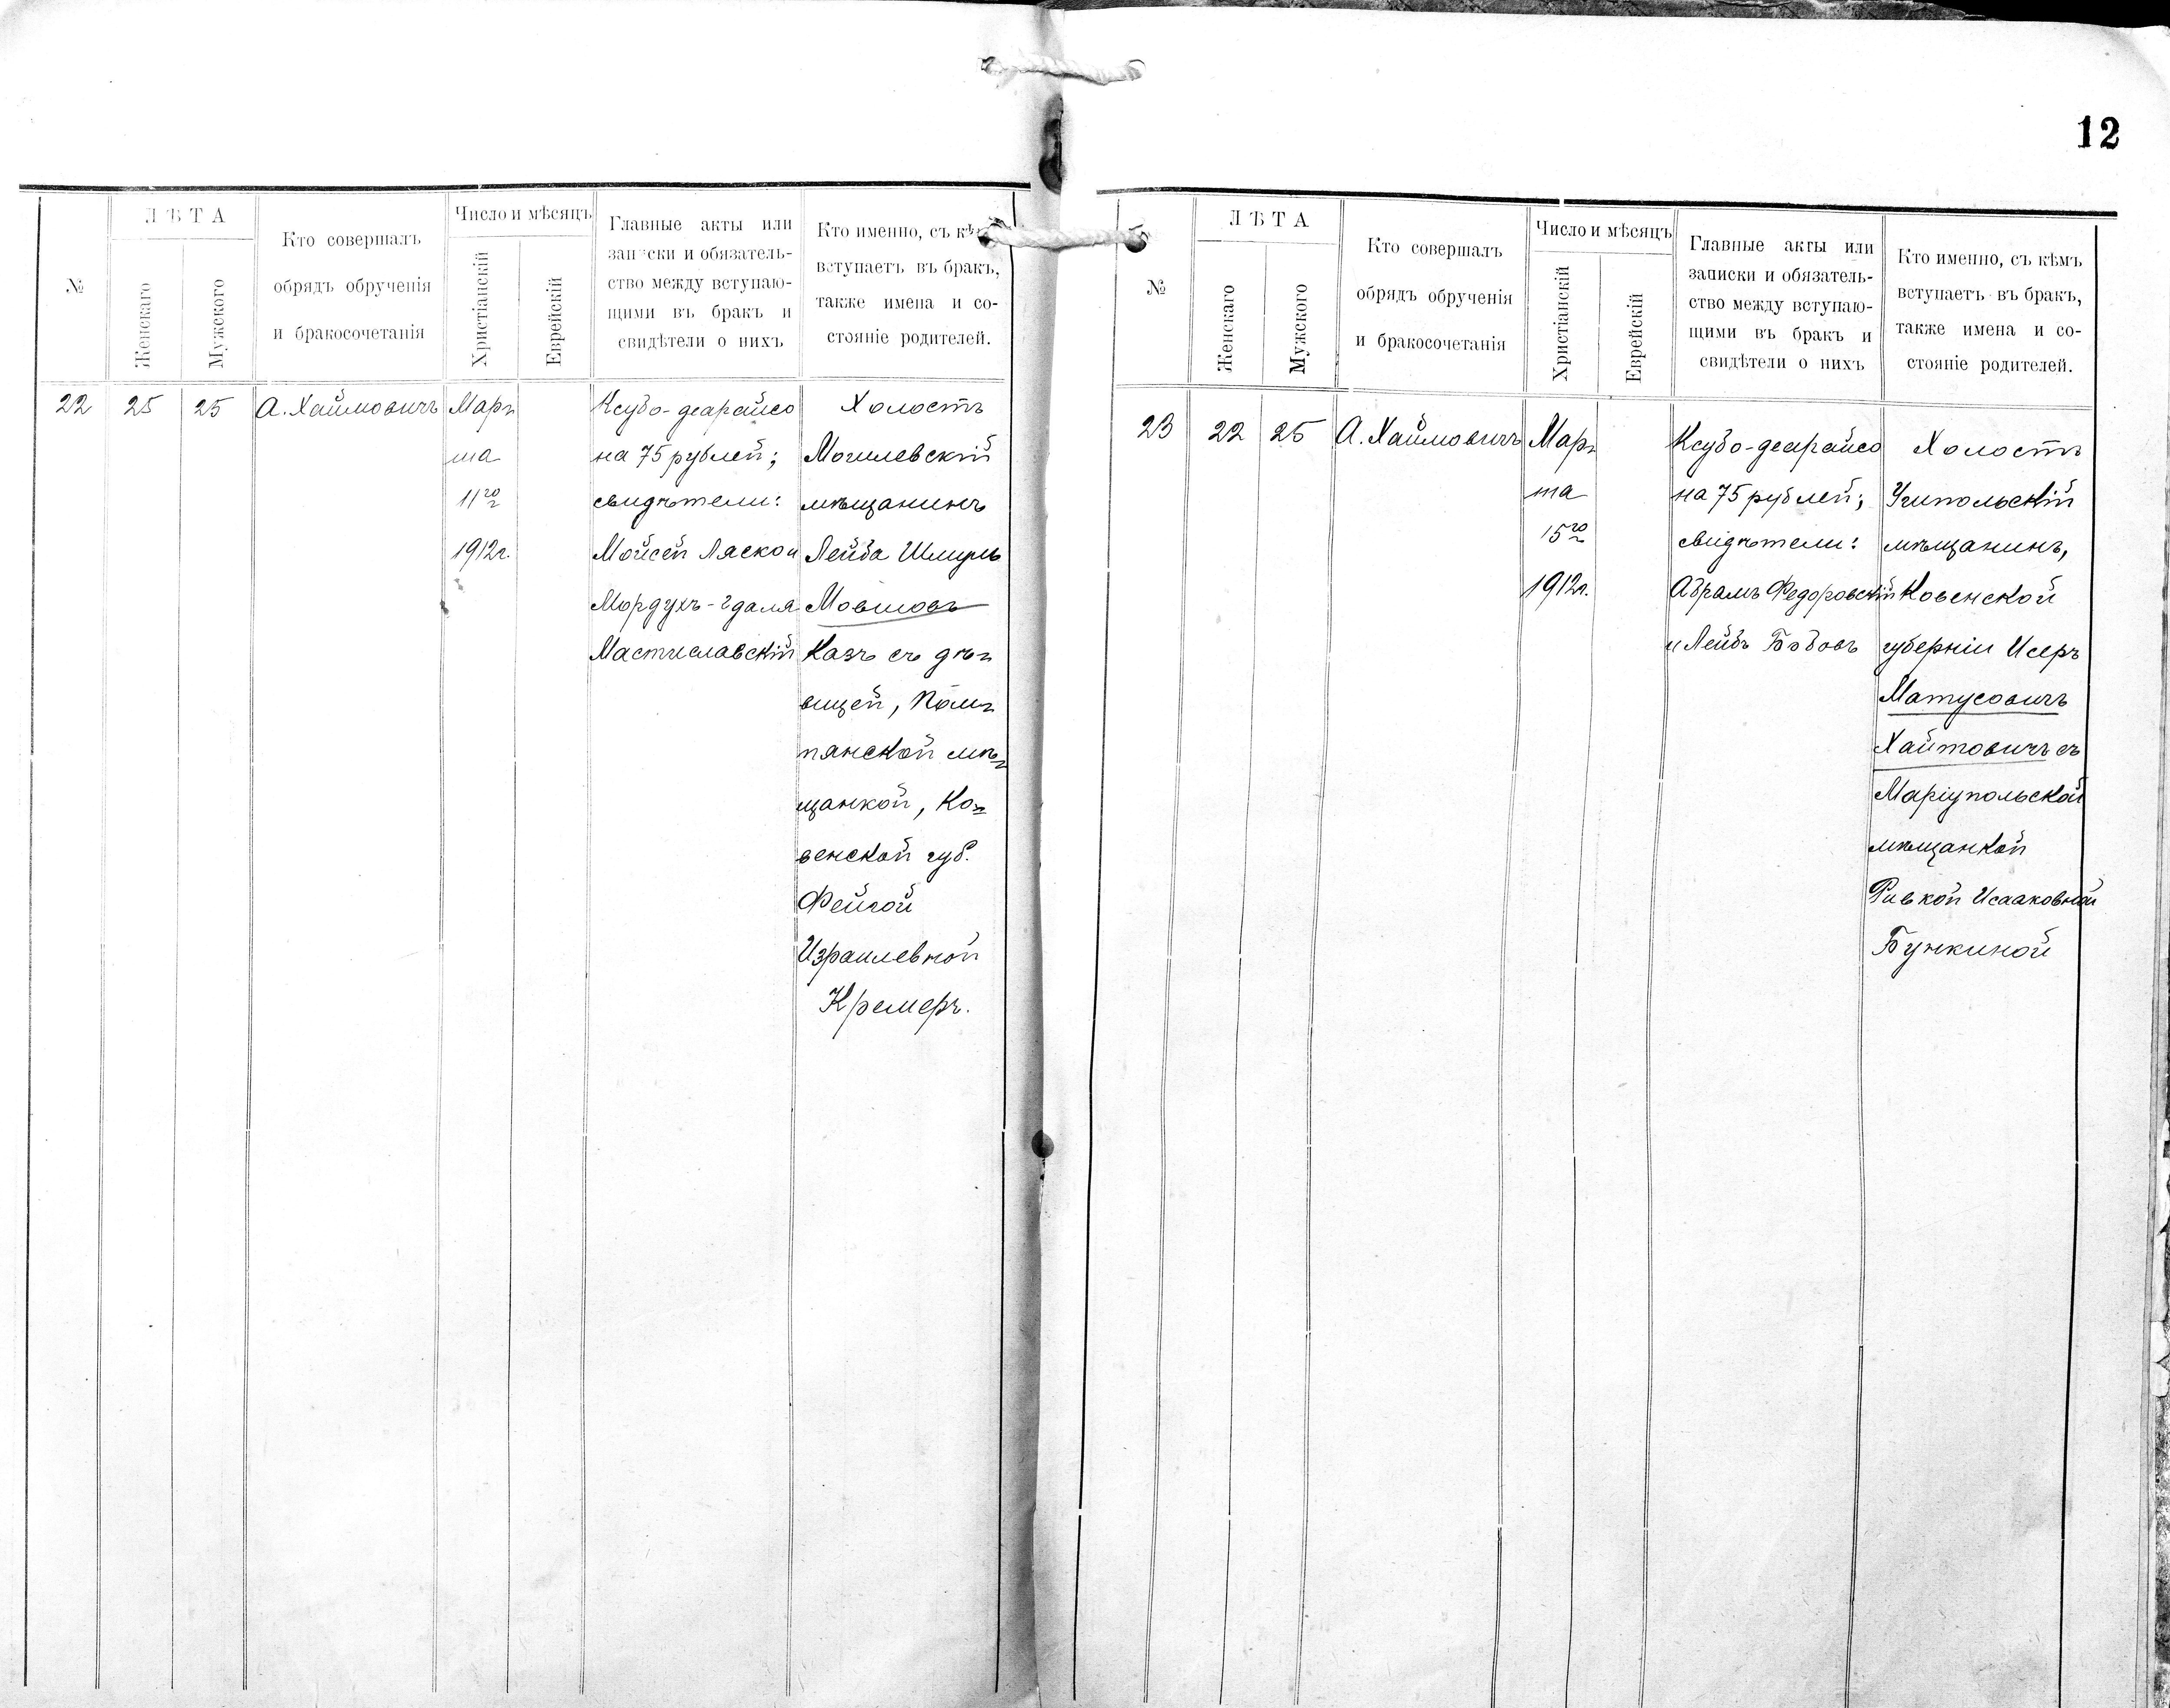 12
№
ЛѢТА
Женскаго
Мужского
Кто совершалъ
обрядъ обрученія
и бракосочетанія
Число и мѣсяцъ
Христіанскій
Еврейскій
Главные акты или
записки и обязатель-
ство между вступаю-
щими въ бракъ и
свидѣтели о нихъ
Кто именно, съ кѣ
вступаетъ въ бракъ,
также имена и со-
стояніе родителей.
22
25
25
А. Хаймовичъ
Мар-
та
11го
1912г.
Ксубо-деарайсо
на 75 рублей;
свидѣтели:
Мойсей Ляско и
Мордухъ-Гдаля
Мастиславскій
Холостъ
Могилевскій
мѣщанинъ
Лейба Шмуль
Мовшовъ
Казъ съ дѣ-
вицей,
мѣ-
щанкой, Ко-
венской губ.
Фейгой
Израилевной
Кремеръ.
№
ЛѢТА
Женскаго
Мужского
Кто совершалъ
обрядъ обрученія
и бракосочетанія
Число и мѣсяцъ
Христіанскій
Еврейскій
Главные акты или
записки и обязатель-
ство между вступаю-
щими въ бракъ и
свидѣтели о нихъ
Кто именно, съ кѣмъ
вступаетъ въ бракъ,
также имена и со-
стояніе родителей.
23
22
25
А. Хаймовичъ
Мар-
та
15го
1912г.
Ксубо-деарайсо
на 75 рублей;
свидѣтели:
Абрамъ Федоровскій
и Лейбъ Бобовъ
Холостъ
мѣщанинъ,
Ковенской
губерніи Исеръ
Матусовичъ
Хаитовичъ съ
Маріупольской
мѣщанкой
Ривкой Исааковной
Бункиной